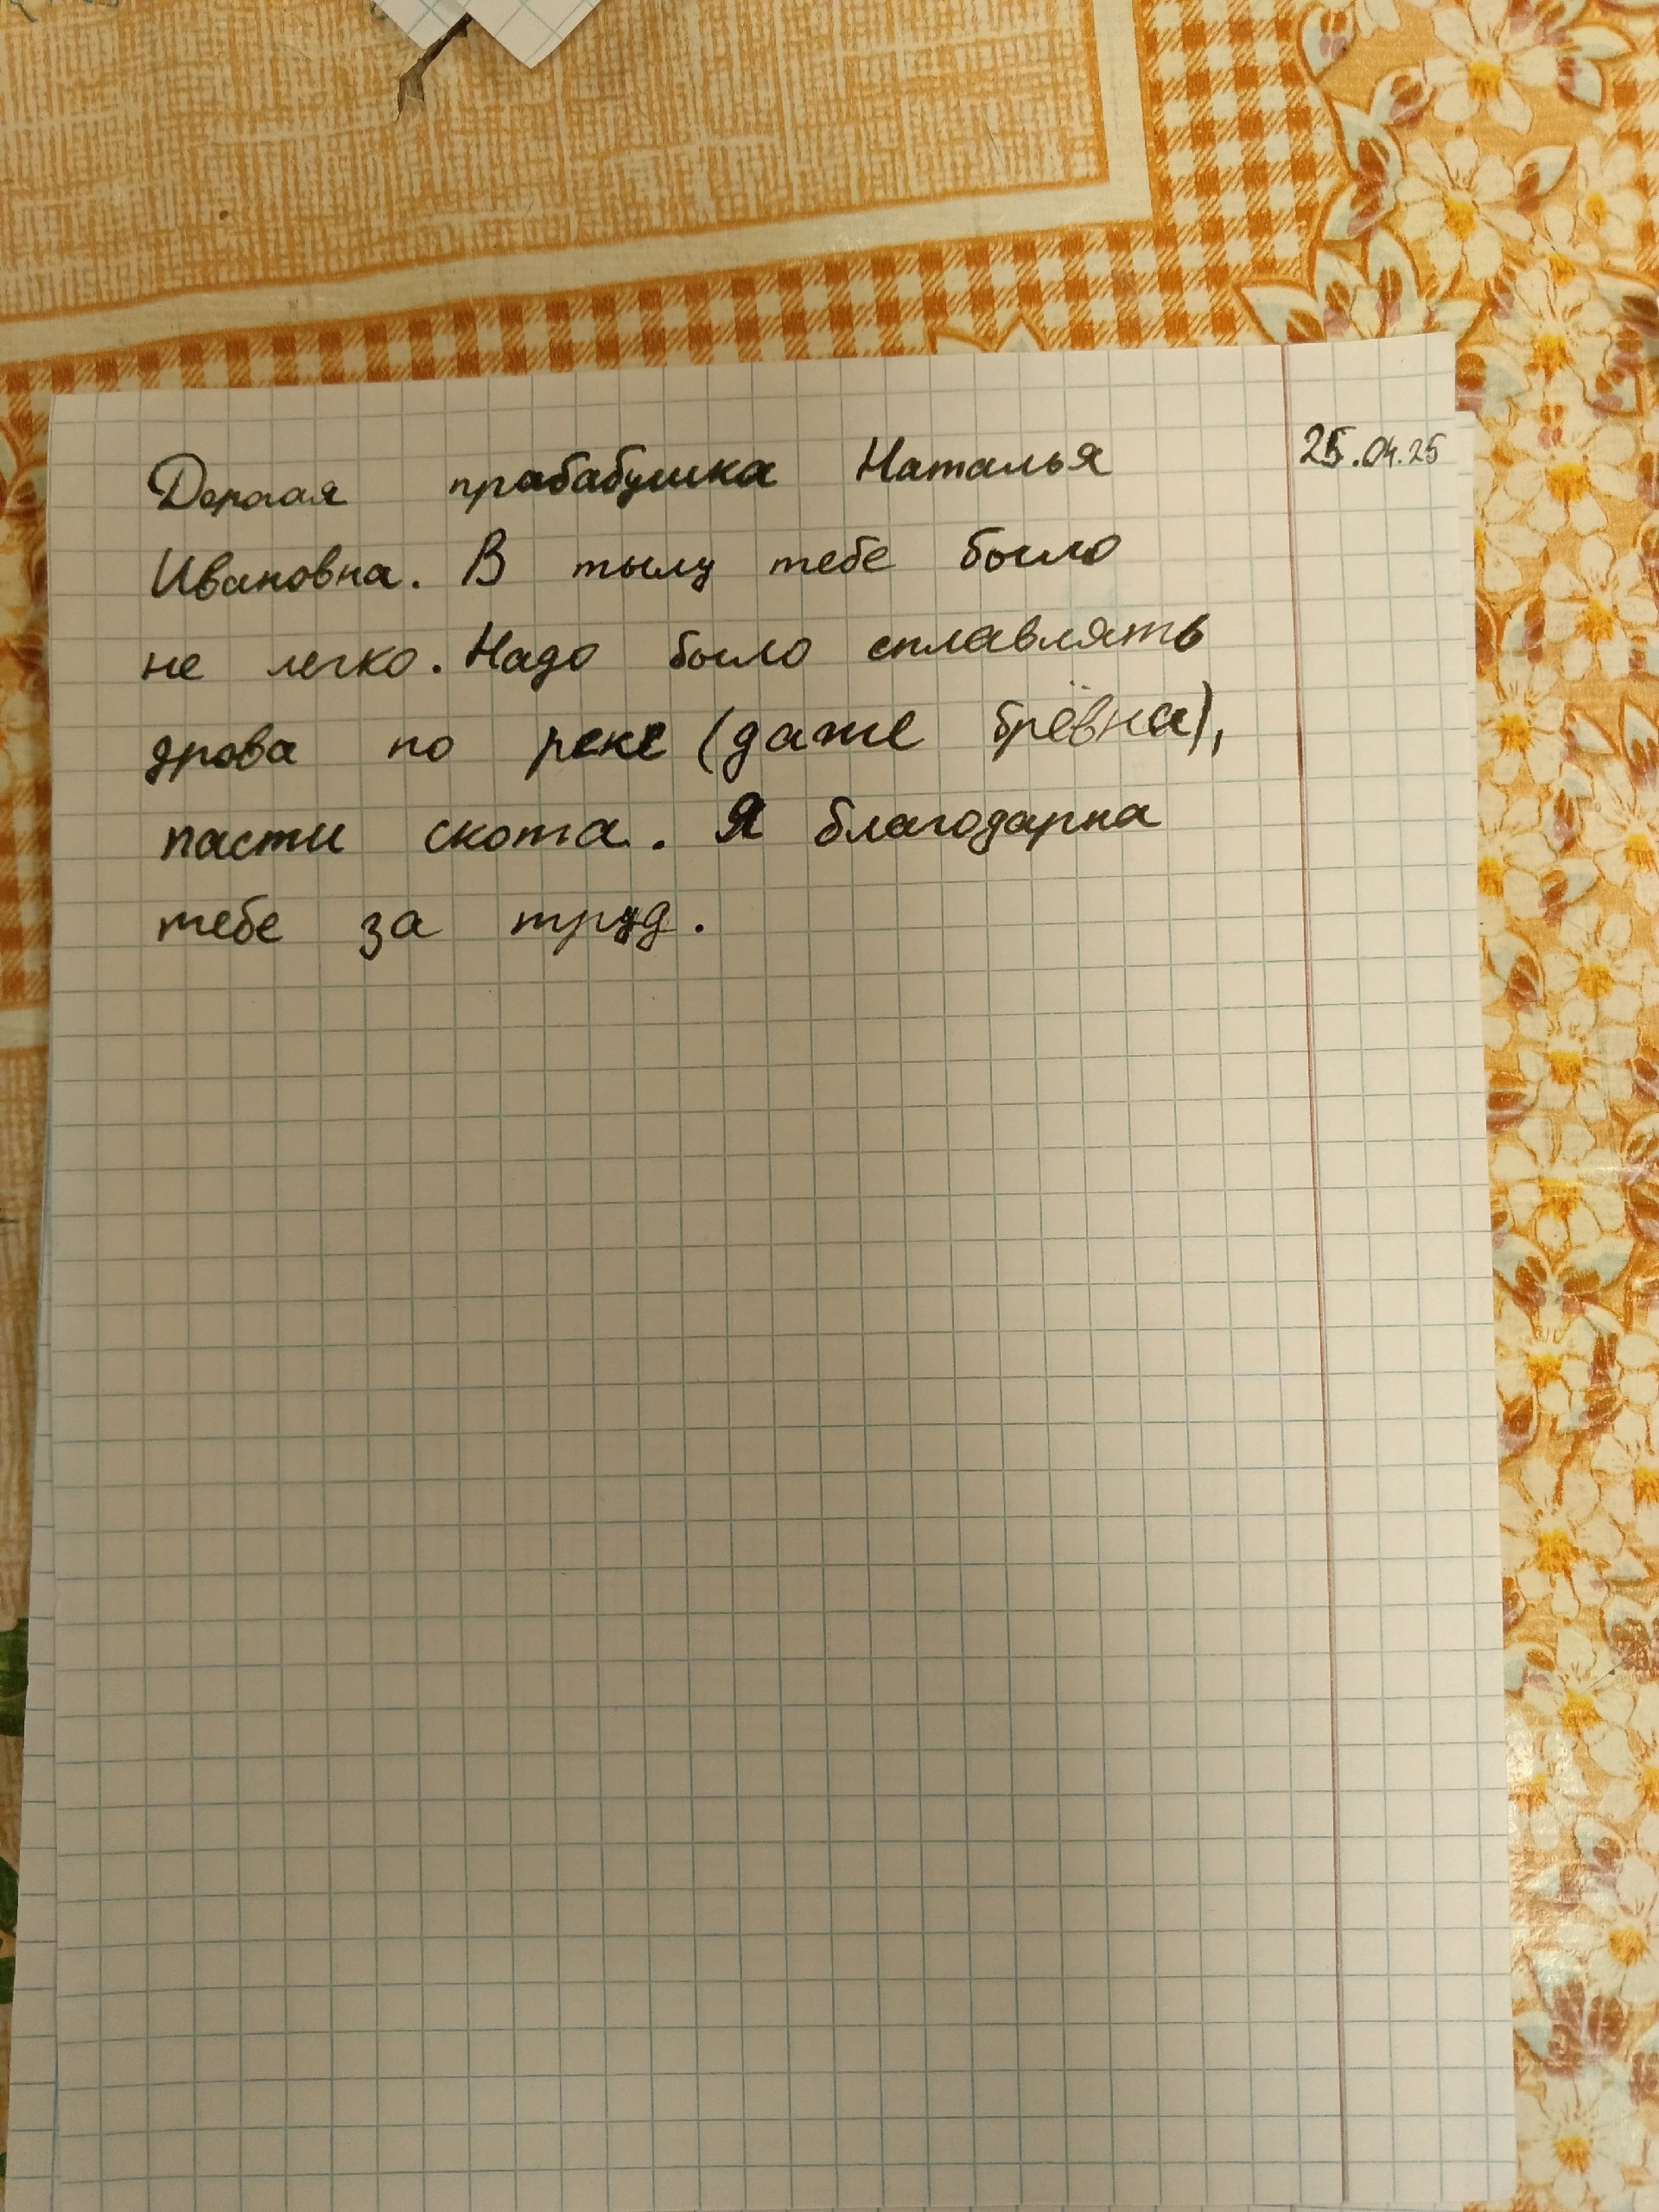 Дорогая прабабушка Наталья
25.04.25
Ивановна. В тылу тебе было
не легко. Надо было сплавлять
дрова по реке (даже брёвна),
пасти скота. Я благодарна
тебе за труд.